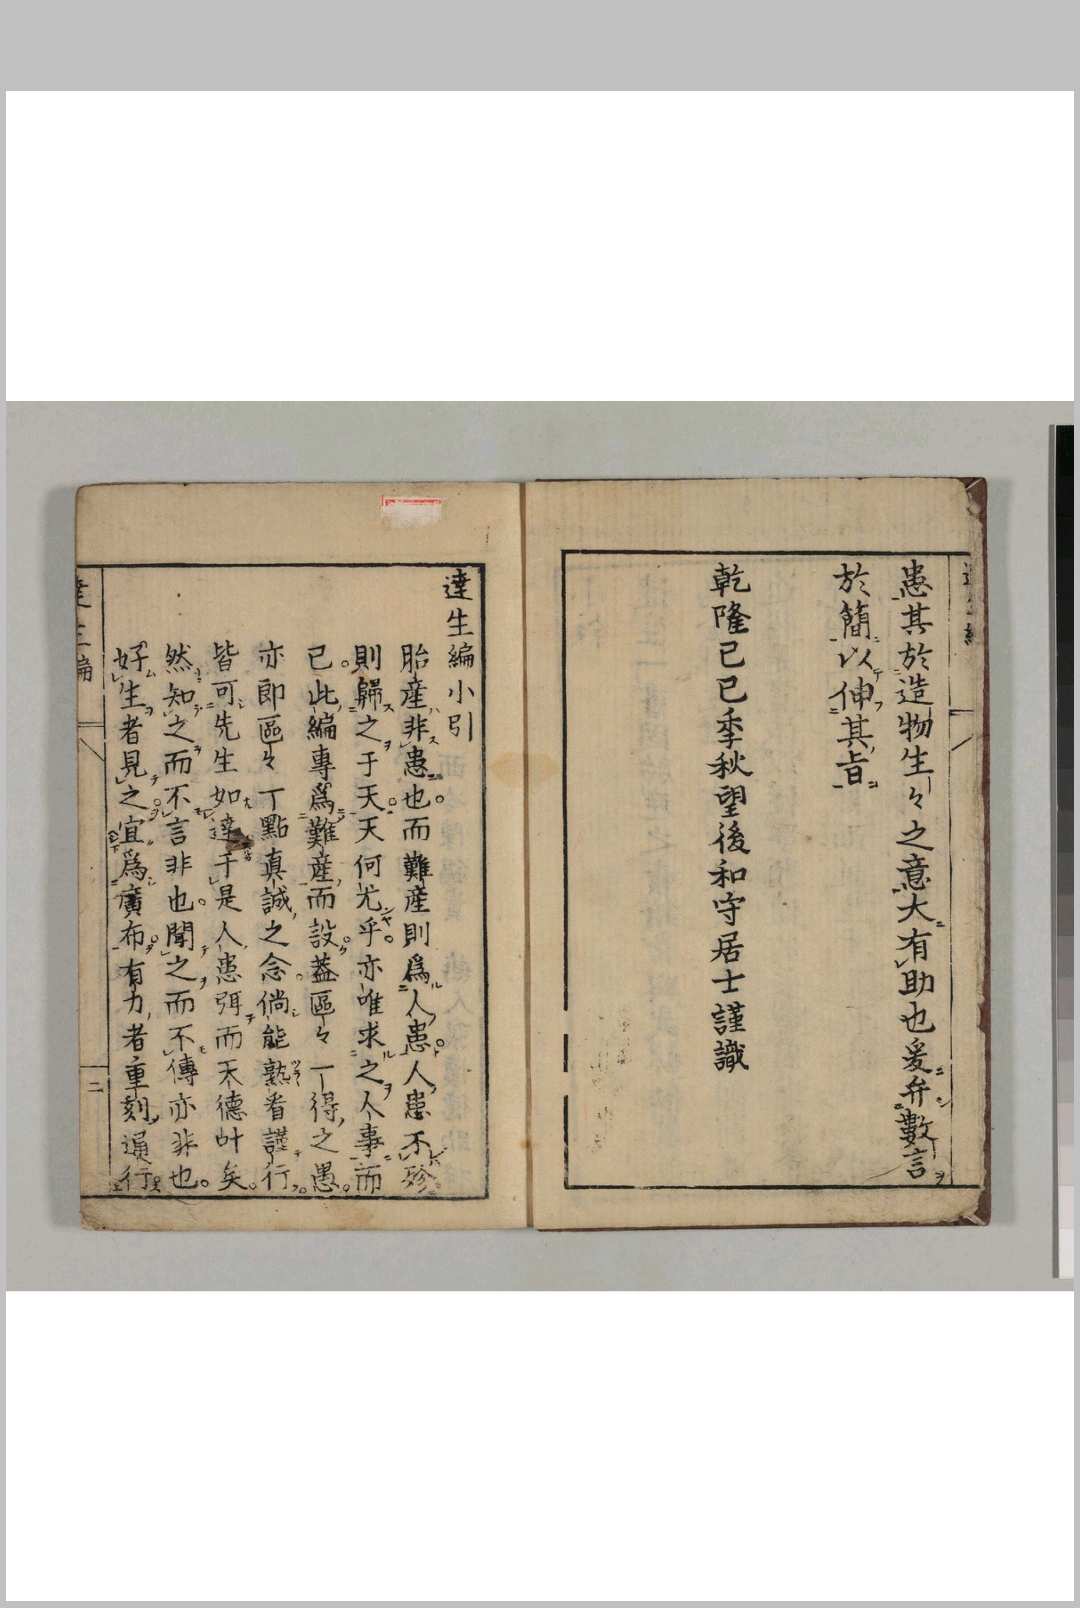 患其於造物生々之意大有助也爰弁數言
於簡以伸其旨
乾隆己巳季秋望後和守居士謹識
達生編小引
胎產非患也而難產則爲人患人患不殄
則歸之于天天何尤乎亦唯求之人事而
已此編專爲難產而設葢區々一得之愚
亦即區々一點真誠之念倘能熟看謹行
皆可先生如達于是人患弭而天德叶矣
然知之而不言非也聞之而不傳亦非也
好生者見之宜爲廣布有力者重刻邇行
二